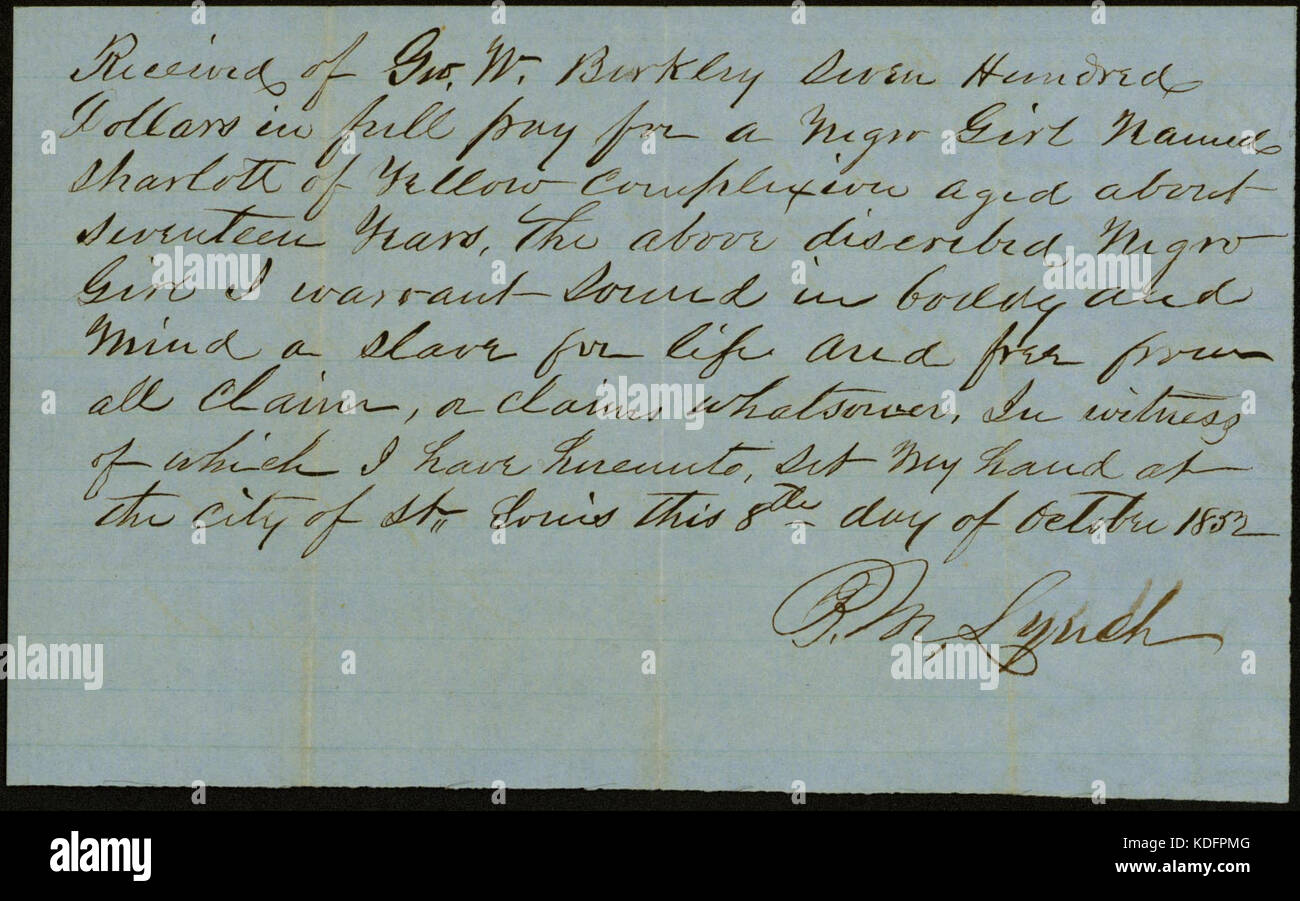 Received of Geo. W. Berkley Seven Hundred
Dollars in full pay for a Negro Girl Named
Sharlott of Yellow Complexion aged about
Seventeen Years, The above discribed Negro
Girl I warrant Sound in boddy and
Mind a slave for life and free from
all Claim, or claims whatsoever, In witness
of which I have hereunto, set My hand at
the city of St,, Louis this 8th day of October 1852
B. M. Lynch
alamy
alamy
Image ID: KDFPMG
www.alamy.com